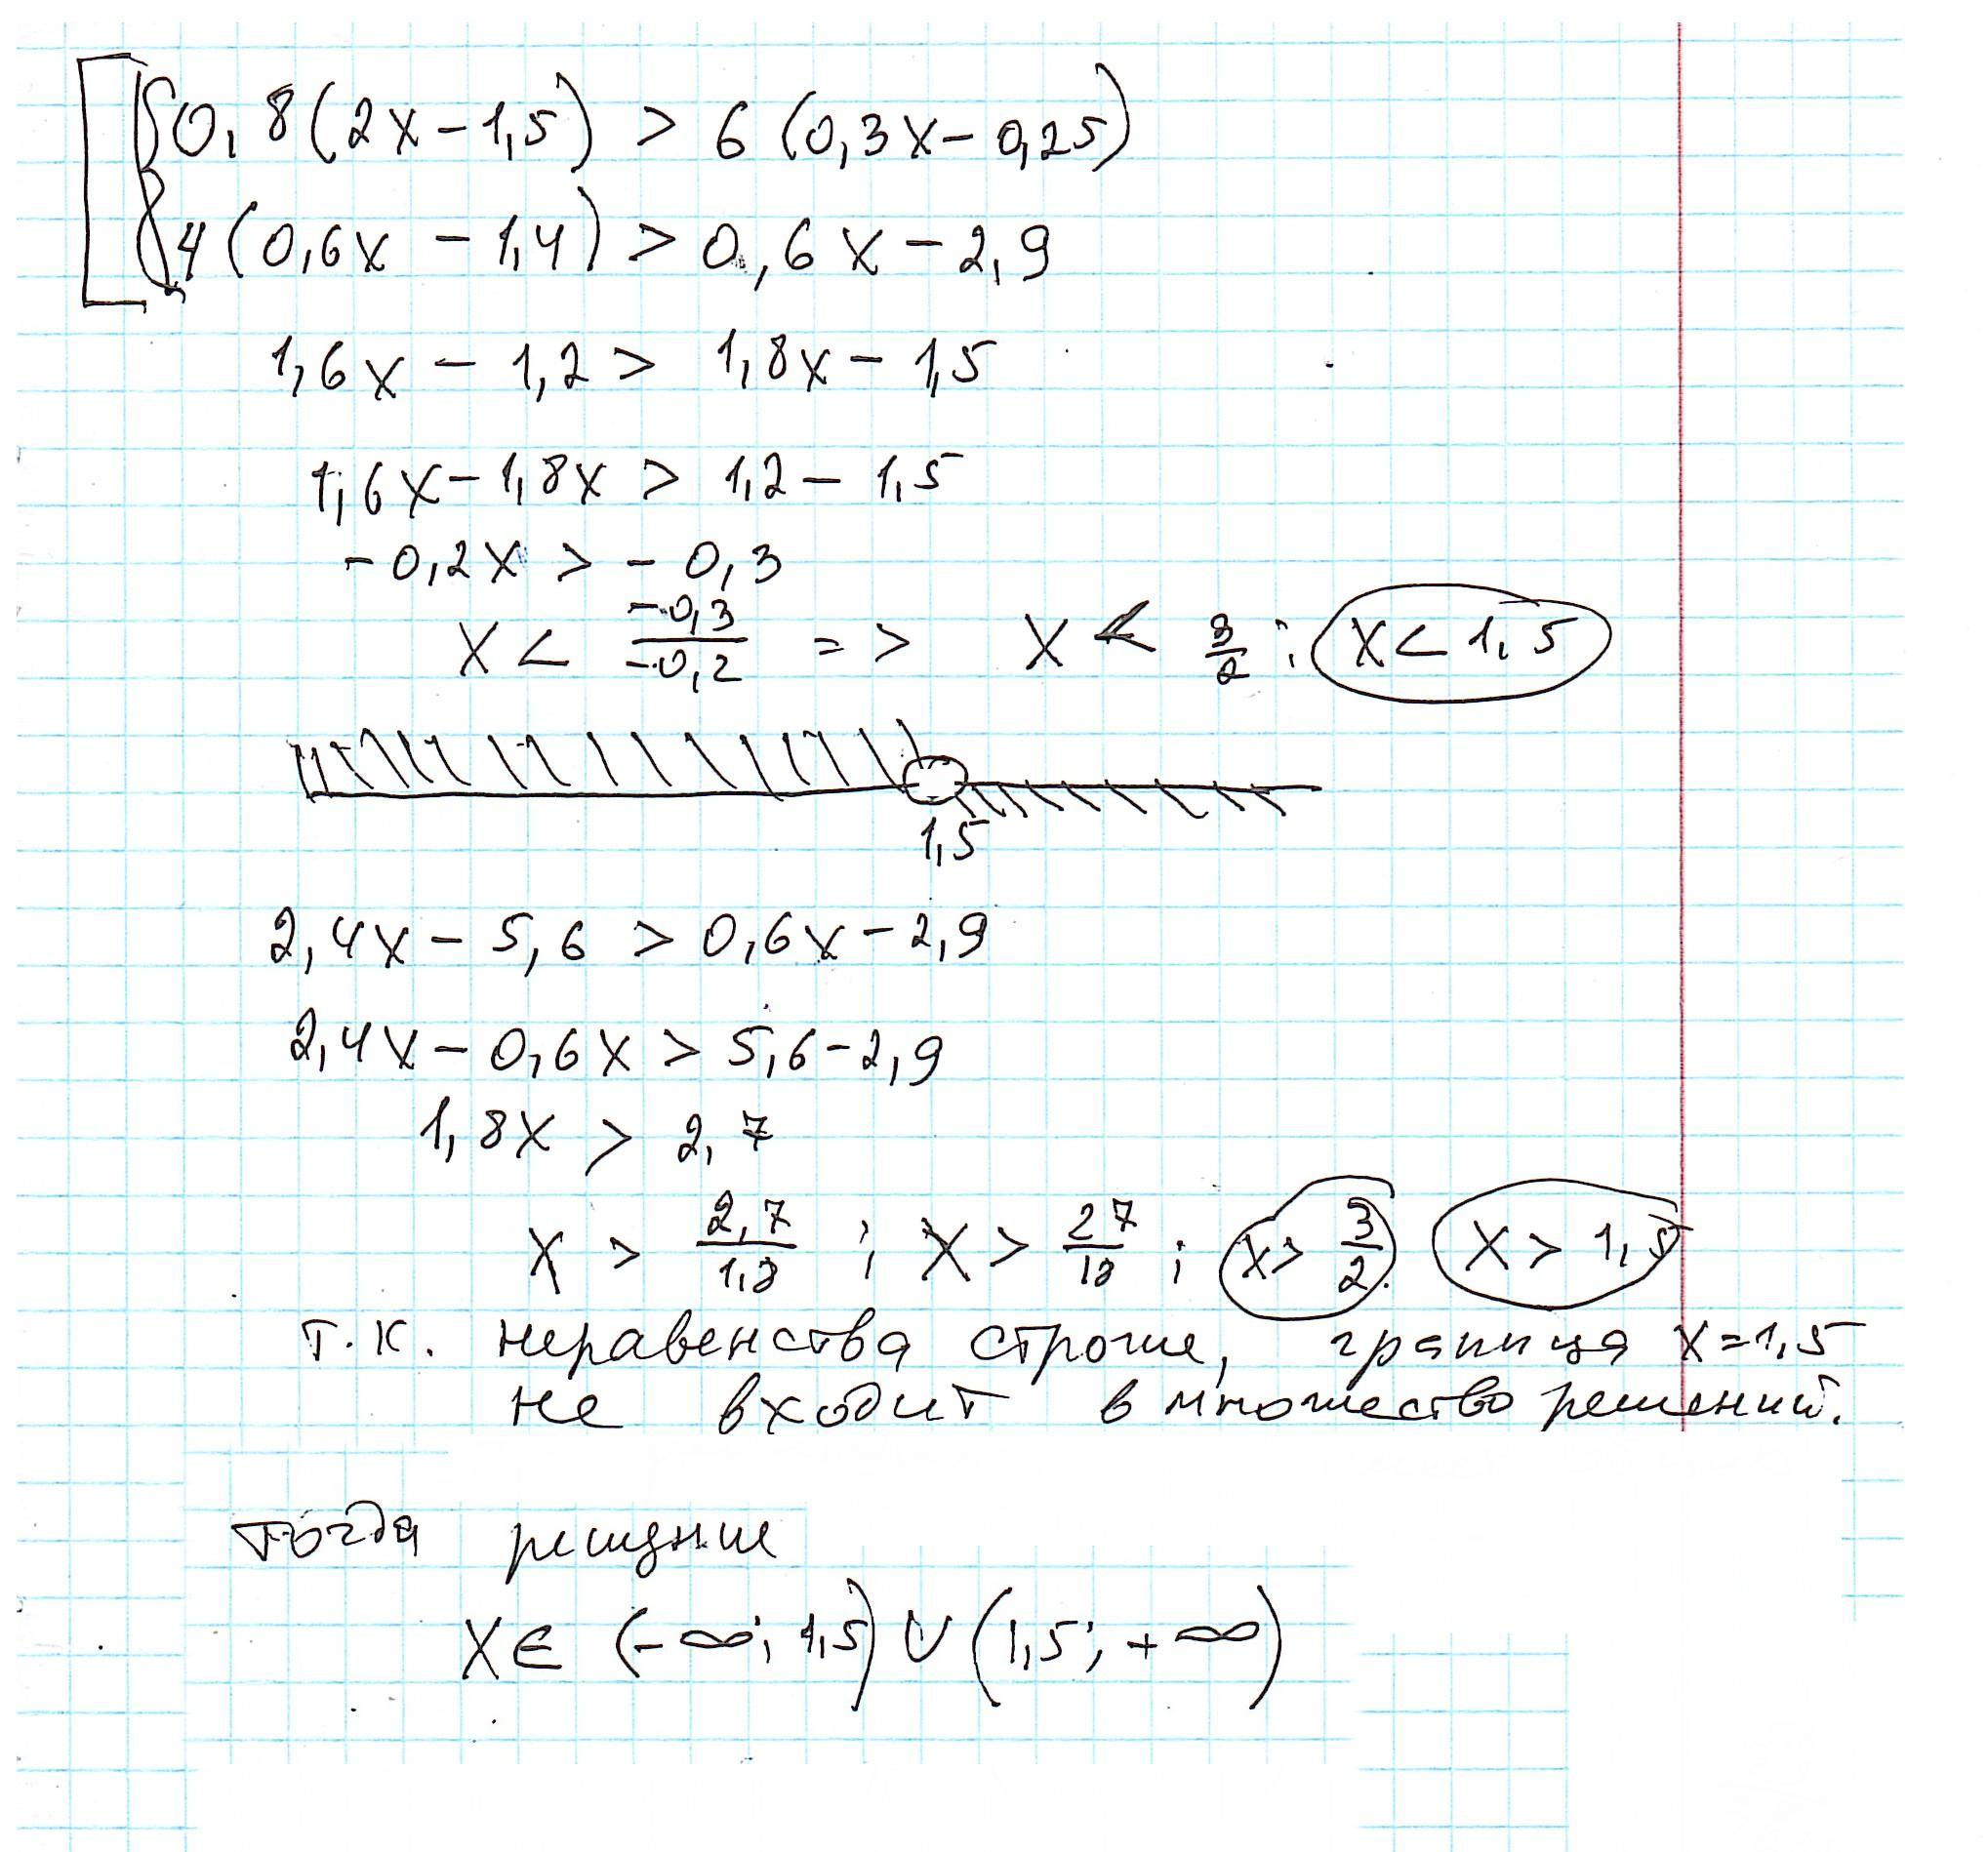 [{0,8(2x-1,5) > 6(0,3x-0,25)
4(0,6x-1,4) > 0,6x-2,9
1,6x - 1,2 > 1,8x - 1,5
1,6x - 1,8x > 1,2 - 1,5
-0,2x > -0,3
x < \frac{-0,3}{-0,2} => x < \frac{3}{2}; x < 1,5
1,5
2,4x - 5,6 > 0,6x - 2,9
2,4x - 0,6x > 5,6 - 2,9
1,8x > 2,7
x > \frac{2,7}{1,8}; x > \frac{27}{18}; x > \frac{3}{2}. x > 1,5
т.к. неравенства строгие, граница x=1,5
не входит в множество решений.
тогда решение
x ∈ (-∞; 1,5) ∪ (1,5; +∞)